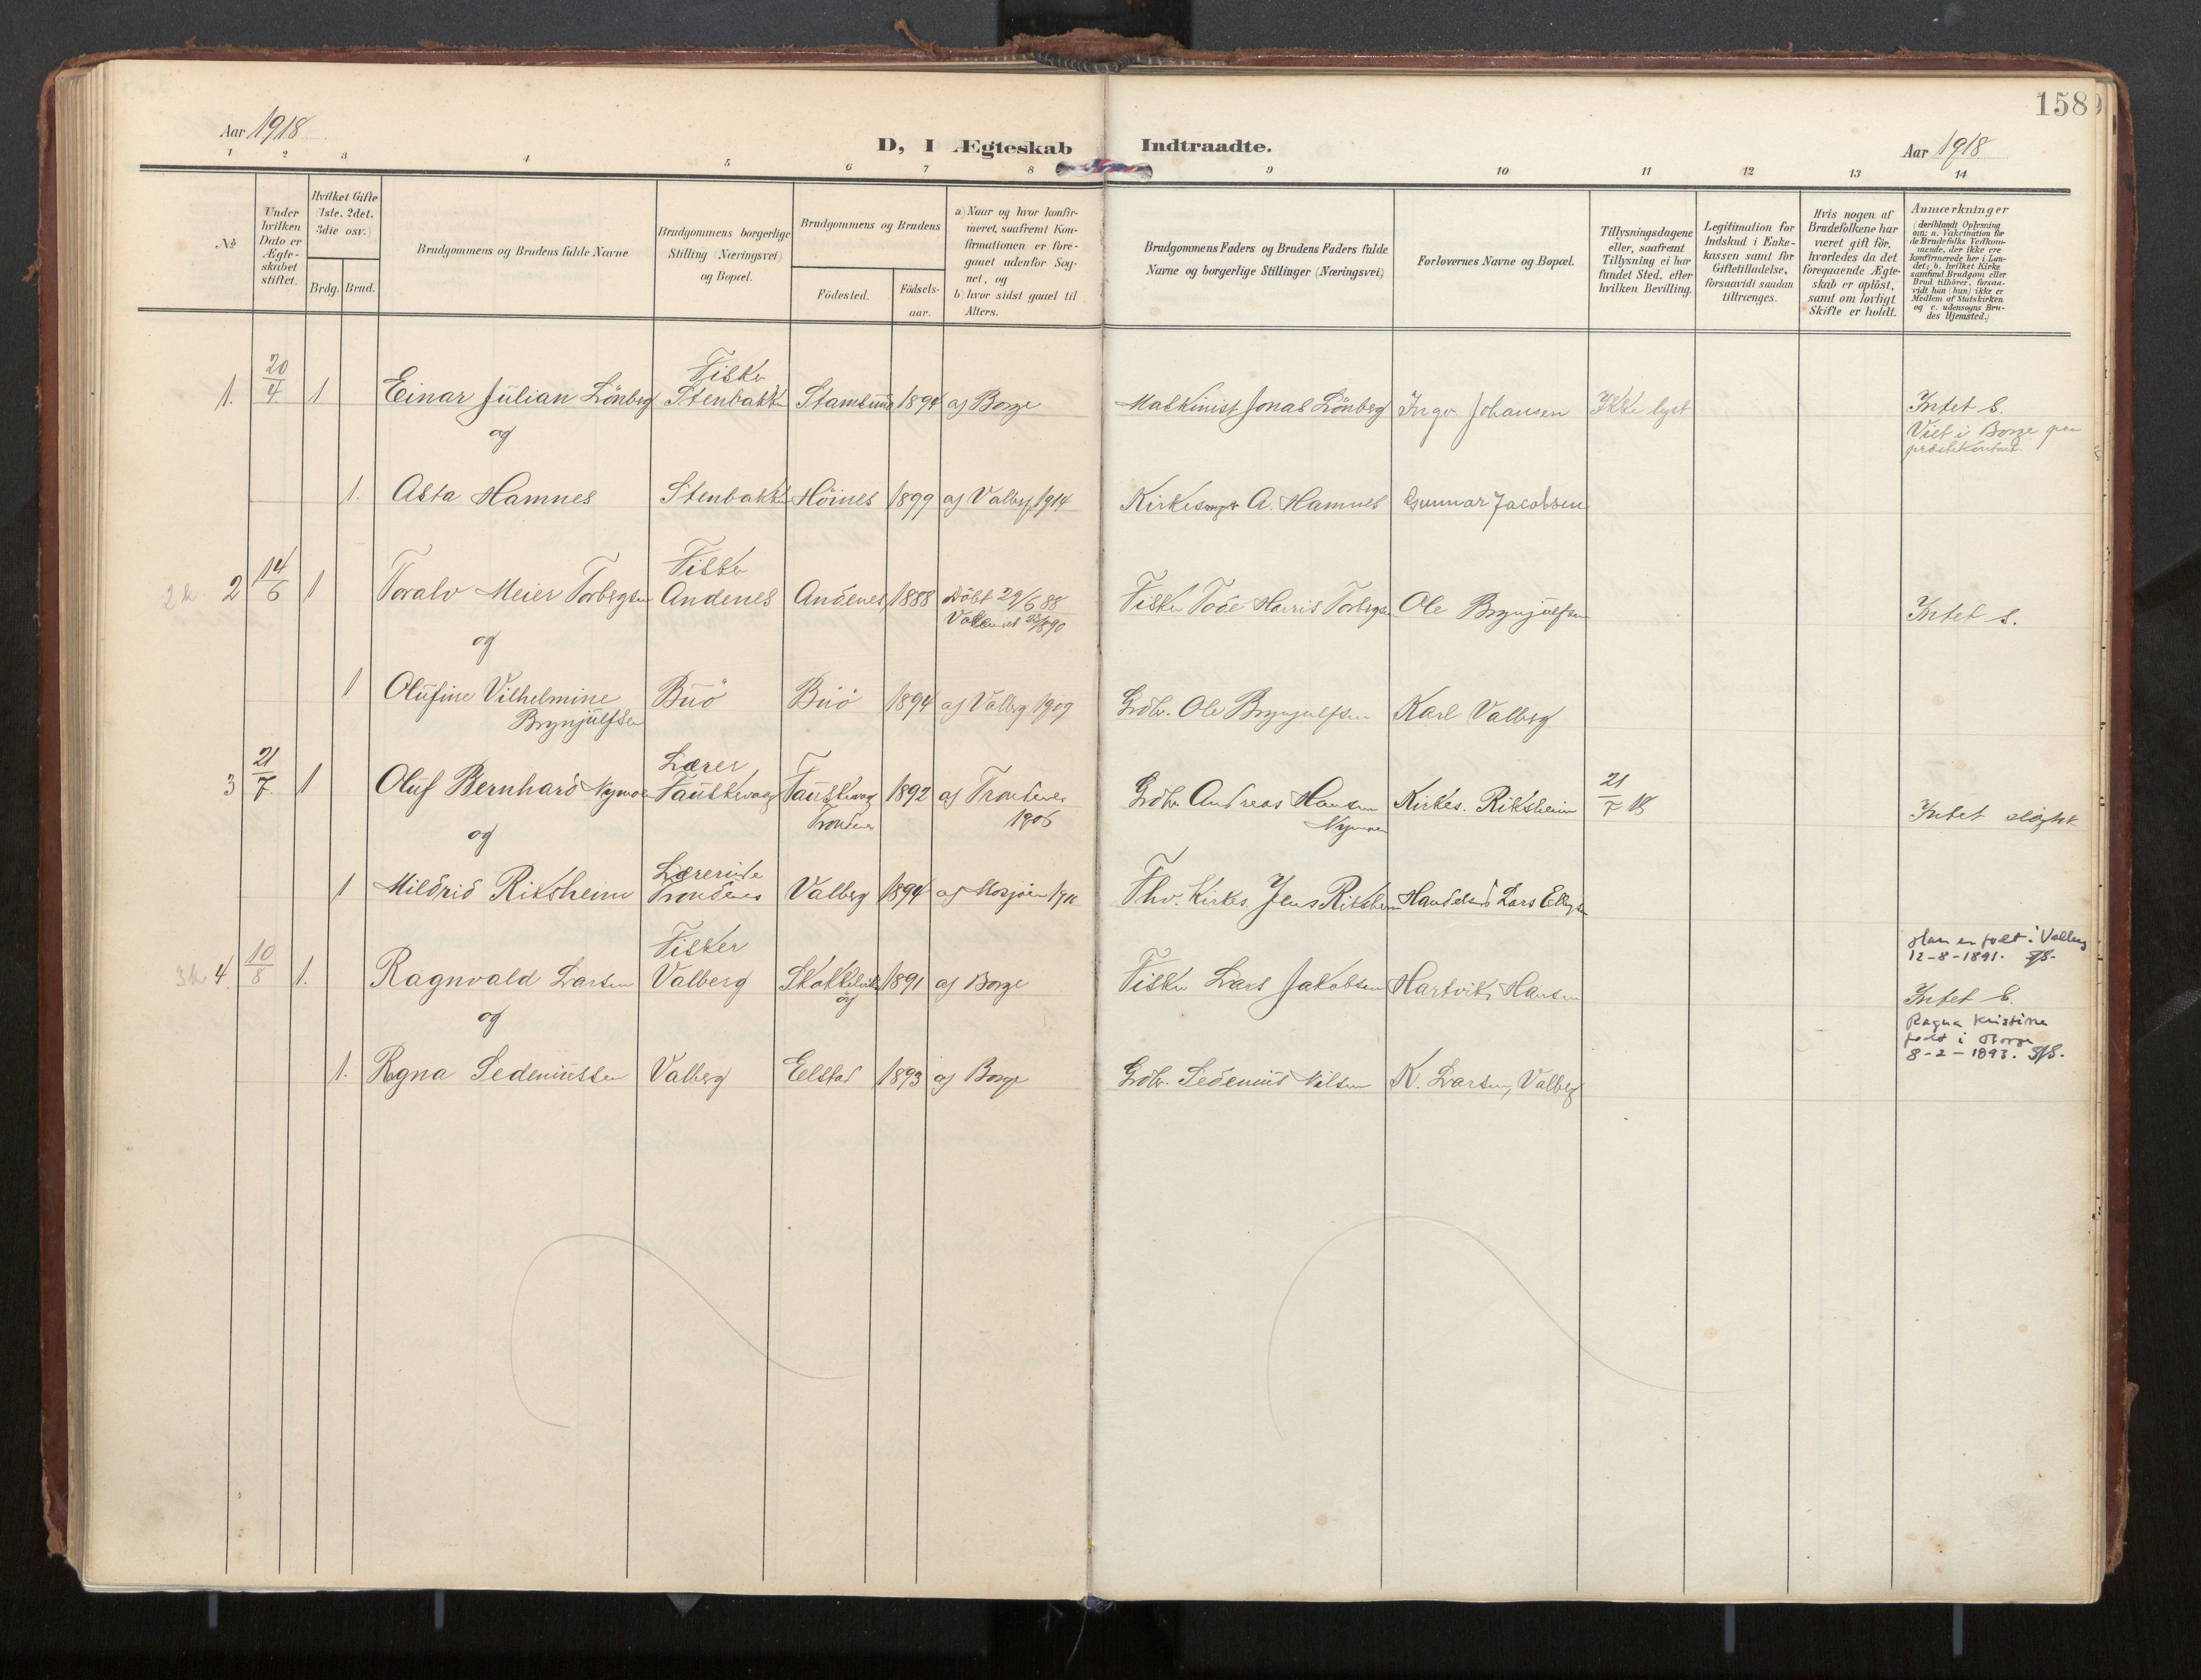 158
Aar 1918
D, I Ægteskab Indtraadte.
Aar 1918
1 2 3 4 5 6 7 8 9 10 11 12 13 14
№
Under hvilken Dato er Ægteskabet stiftet.
Hvilket Gifte (1ste, 2det, 3die osv.)
Brdg. Brud.
Brudgommens og Brudens fulde Navne
Brudgommens borgerlige Stilling (Næringsvei) og Bopæl.
Brudgommens og Brudens
Födested. Födselsaar.
a) Naar og hvor konfirmeret, saafremt Konfirmationen er foregaaet udenfor Sognet, og
b) hvor sidst gaaet til Alters.
Brudgommens Faders og Brudens Faders fulde Navne og borgerlige Stillinger (Næringsvei)
Forlovernes Navne og Bopæl.
Tillysningsdagene eller, saafremt Tillysning ei har fundet Sted, efter hvilken Bevilling.
Legitimation for Indskud i Enkekassen samt for Giftetilladelse, forsaavidt saadan tiltrænges.
Hvis nogen af Brudefolkene har været gift för, hvorledes da det foregaaende Ægteskab er oplöst, samt om lovligt Skifte er holdt.
Anmærkninger
(deriblandt Oplysning om: a. Vakcination för de Brudefolks Vedkommende, der ikke ere konfirmerede her i Landet; b. hvilket Kirkesamfund Brudgom eller Brud tilhörer, forsaavidt han (hun) ikke er Medlem af Statskirken og c. udensogns Brudes Hjemsted.)
1. 20/4 1 Einar Julian Lönberg Fisker Stenbakken Stamsund 1894 a) Borge Maskinist Jonas Lönberg Ingv. Johansen Ikke lyst Intet s.
Viet i Borge paa prestekontoret.
og
1. Asta Hamnes Stenbakken Höines 1899 a) Valberg 1914 Kirkesanger A. Hamnes Gunnar Jacobsen
2 14/6 1 Toralv Meier Torbergsen Fisker Andenes Andenes 1888 Döbt 29/6 88 Fisker Tode Harris Torbergsen Ole Brynjulfsen Intet s.
og
1 Olufine Vilhelmine Brynjülfsen Buö Buö 1894 a) Valberg 1909 Grdbr. Ole Brynjulfsen Karl Valberg
3 21/7. 1 Oluf Bernhard Nymoen Lærer, Fauskevaag Fauskevaag Trondenes 1892 a) Trondenes 1906 Grdbr. Andreas Hansen Nymoen Kirkes. Riksheim 21/7 18 Intet slægtsk
og
1 Mildrid Riksheim Lærerinde Trondenes Valberg 1894 a) Mosjöen Fhv. Kirkes. Jens Riksheim Handelsm. Lars
3k 4. 10/8 1. Ragnvald Larsen Fisker Valberg 1891 a) Borge Fisker Lars Jakobsen Hartvik Hansen
Han er födt i Valberg 12-8-1891.
Intet s.
og
Ragna Kristine födt i Borge 8-2-1893.
1. Ragna Sedeniussen Valberg Eelstad 1893 a) Borge Grdbr. Sedenius Nilsen K. Larsen, Valberg